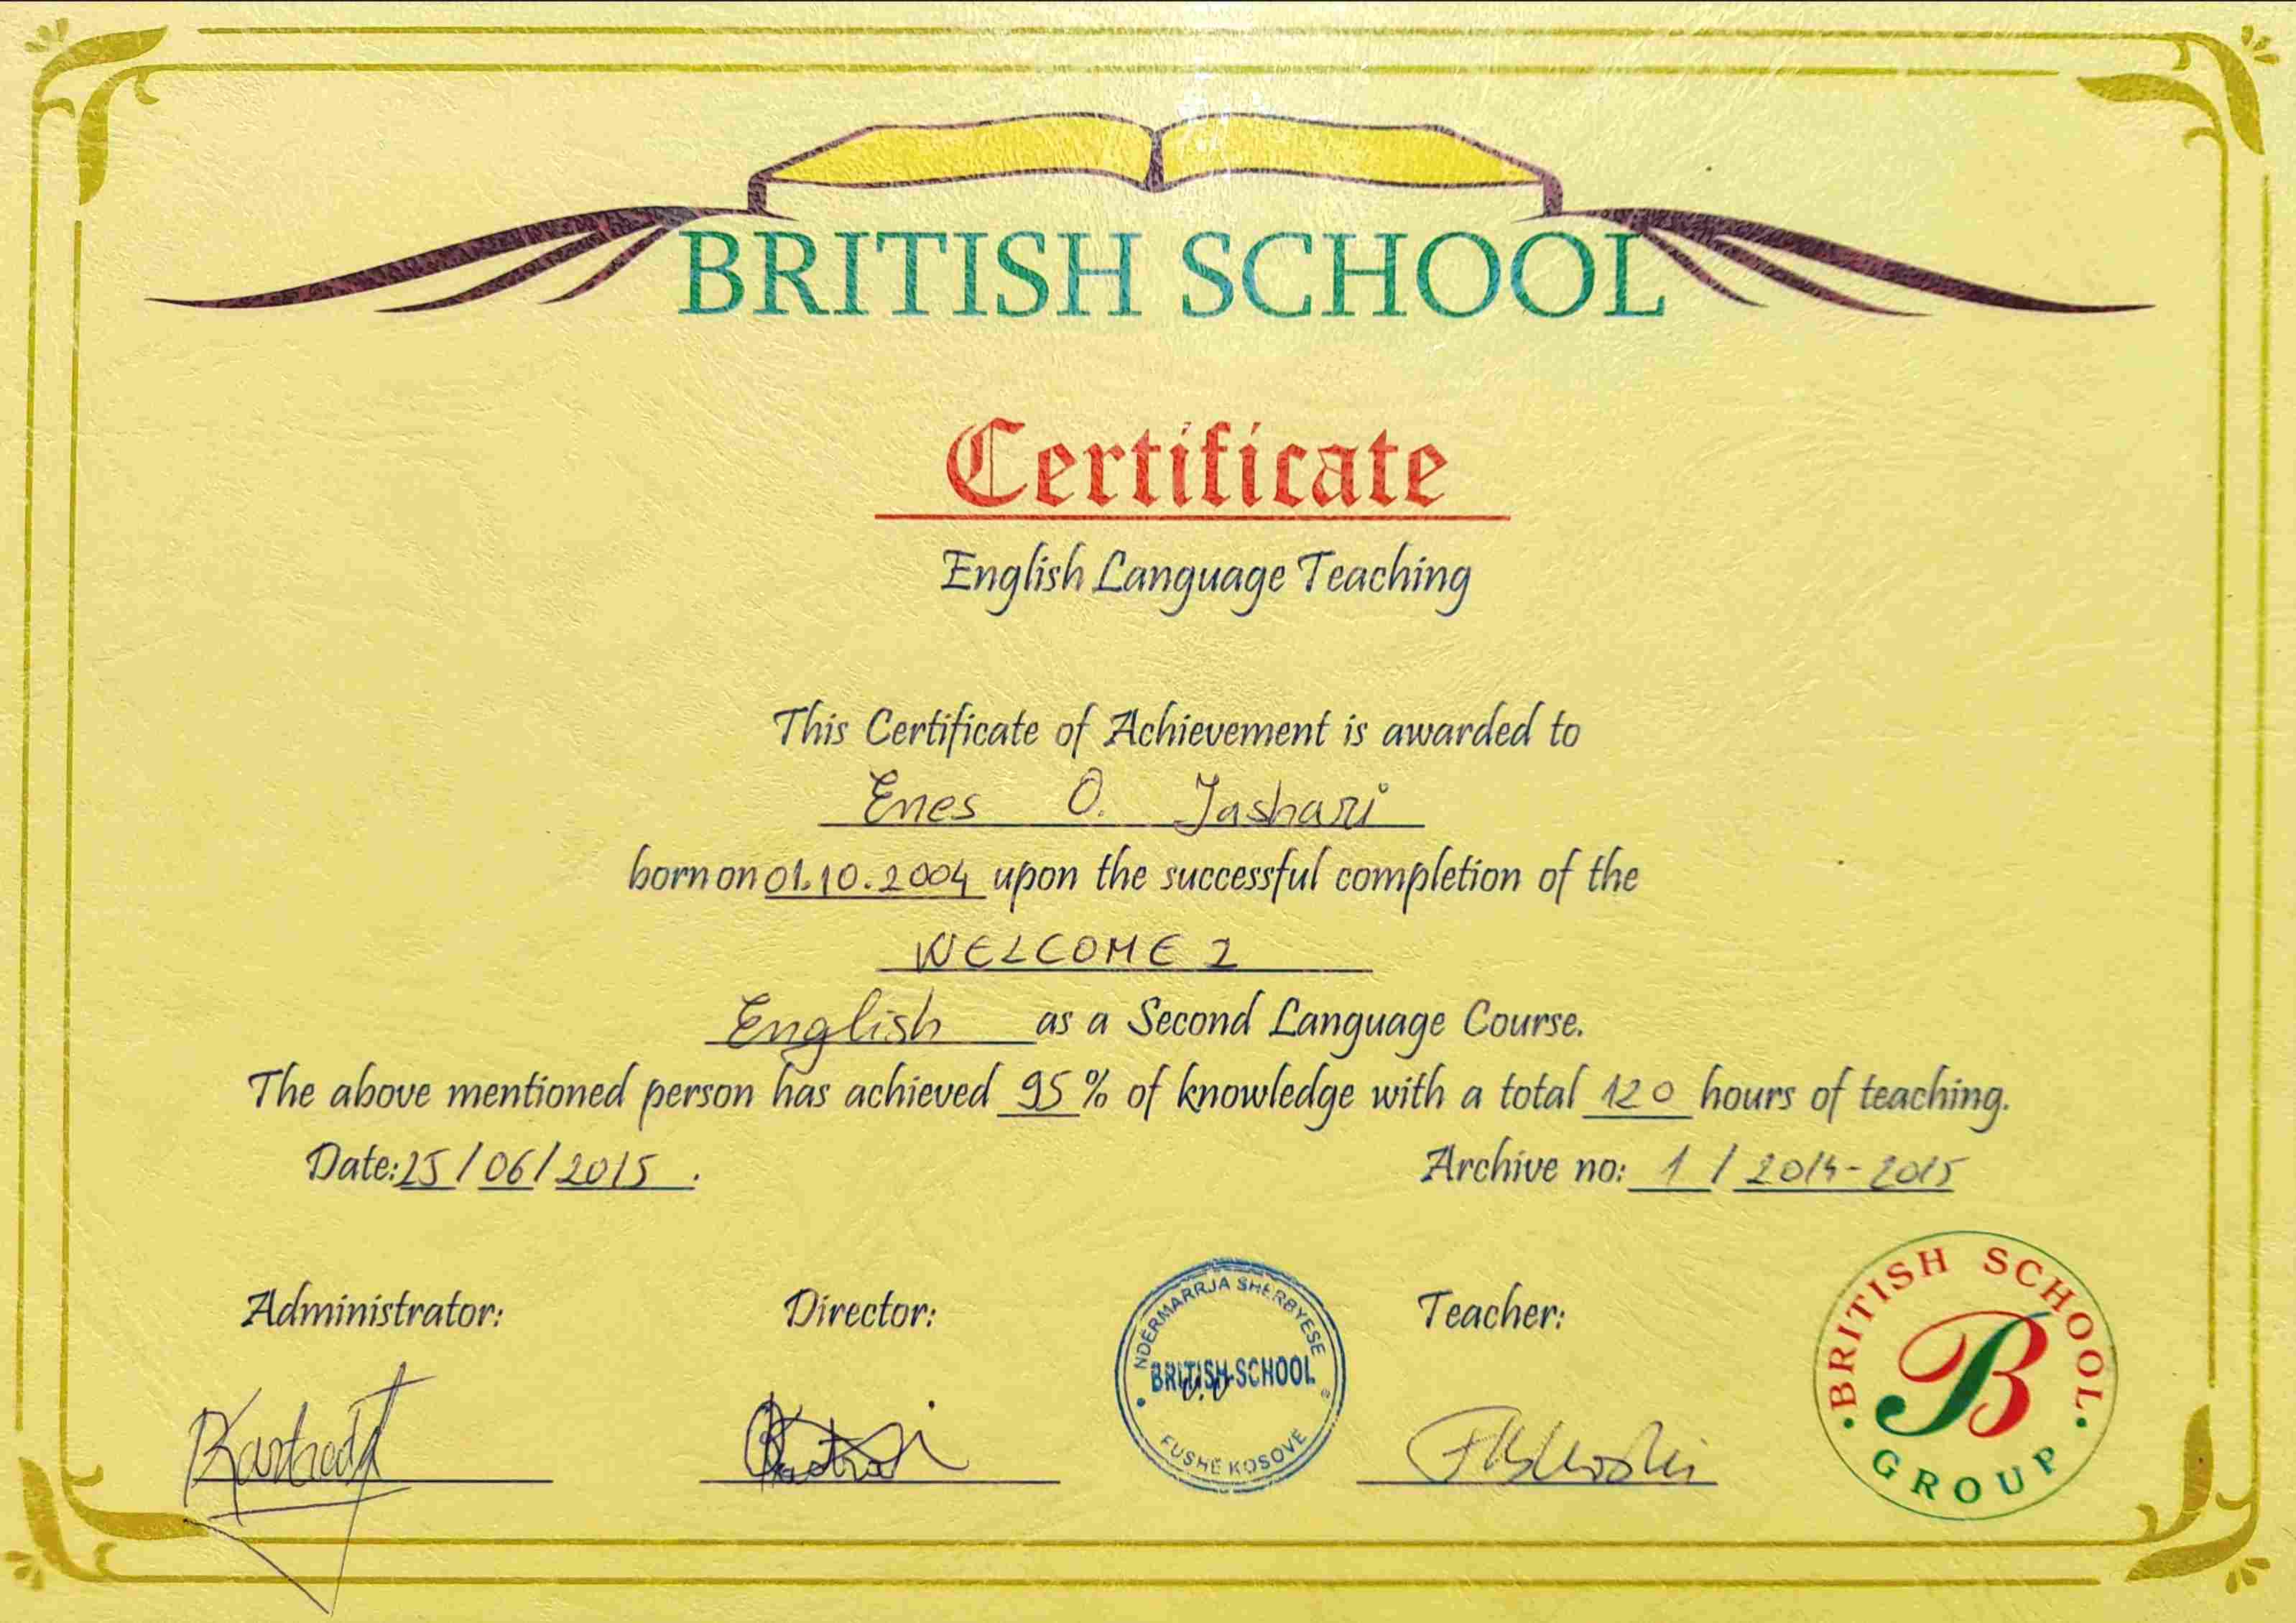 BRITISH SCHOOL
Certificate
English Language Teaching
This Certificate of Achievement is awarded to
Enes O. Jashari
born on 01.10.2004 upon the successful completion of the
WELCOME 2
English as a Second Language Course.
The above mentioned person has achieved 95 % of knowledge with a total 120 hours of teaching.
Date: 25 / 06 / 2015 .
Archive no: 1 / 2014-2015
Administrator:
Director:
Teacher:
NDERMARRJA SHERBYESE
BRITISH-SCHOOL
FUSHË KOSOVË
BRITISH SCHOOL
B
GROUP